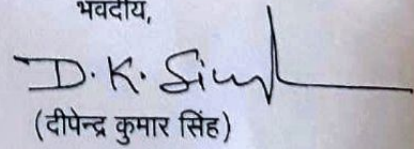 भवदीय,
D. K. Singh
(दीपेन्द्र कुमार सिंह)